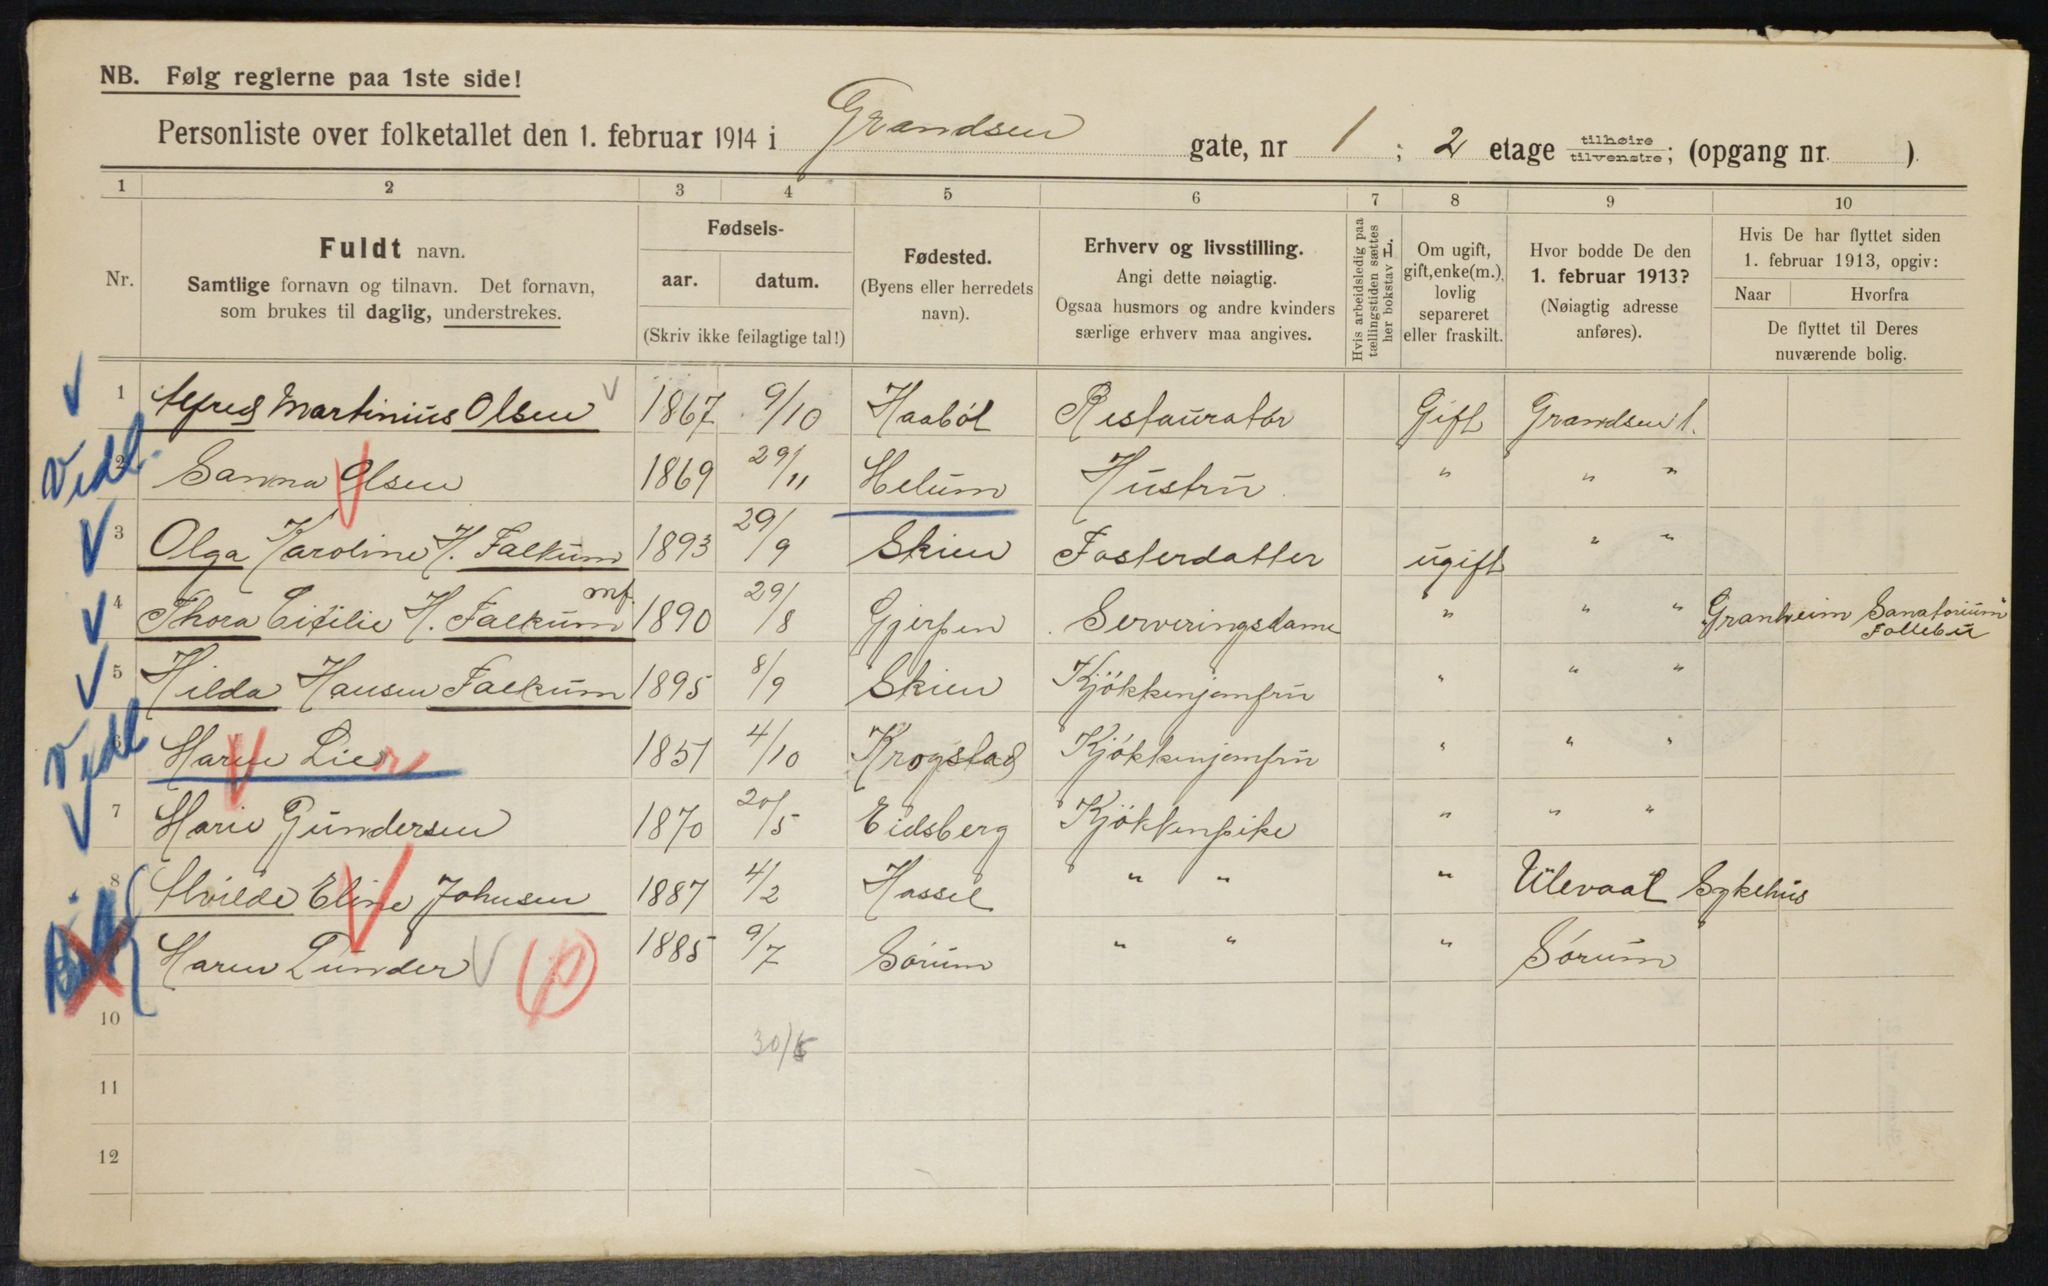 NB. Følg reglerne paa 1ste side!
Personliste over folketallet den 1. februar 1914 i Grandsen gate, nr 1 ; 2 etage tilhøire tilvenstre; (opgang nr. )
1 2 3 4 5 6 7 8 9 10
Nr.
Fuldt navn.
Samtlige fornavn og tilnavn. Det fornavn,
som brukes til daglig, understrekes.
Fødsels-
aar. datum.
(Skriv ikke feilagtige tal!)
Fødested.
(Byens eller herredets
navn).
Erhverv og livsstilling.
Angi dette nøiagtig.
Ogsaa husmors og andre kvinders
særlige erhverv maa angives.
Hvis arbeidsledig paa
tællingstiden sættes
her bokstav L
Om ugift,
gift, enke(m.),
lovlig
separeret
eller fraskilt.
Hvor bodde De den
1. februar 1913?
(Nøiagtig adresse
anføres).
Hvis De har flyttet siden
1. februar 1913, opgiv:
Naar Hvorfra
De flyttet til Deres
nuværende bolig.
1 Alfred Martinius Olsen 1867 9/10 Haaböl Restauratör Gift Grandsen 1.
Vidl. 2 Sanna Olsen 1869 29/11 Hustru " " "
3 Olga Karoline H. Falkum 1893 29/9 Skien Fosterdatter ugift " "
mf.
4 Thora Cicilie H. Falkum 1890 29/8 Gjerpen Serveringsdame " " " Granheim Sanatorium
Follebu
5 Hilda Hansen Falkum 1895 8/9 Skien Kjökkenjomfru " " "
Vidl 6 Maren Lier 1851 4/10 Krogstad Kjökkenjomfru " " "
7 Marie Gundersen 1870 20/5 Eidsberg Kjökkenpike " " "
8 Alvilde Eline Johnsen 1887 4/2 Hassel " " " Ulevaal Sykehus
Maren Lunder 1885 9/7 Sörum " " " Sörum
10
30/6
11
12